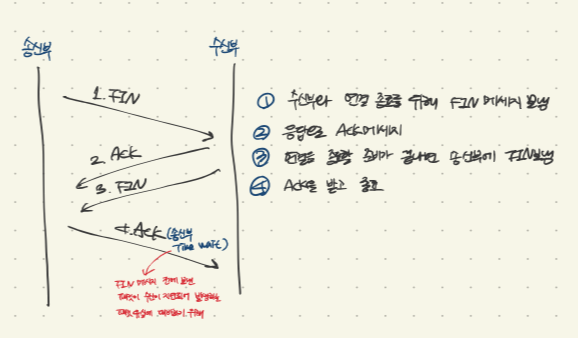 송신부
수신부
1. FIN
2. Ack
3. FIN
4. Ack (송신부
Time Wait)
FIN 메세지 전에 보낸
패킷이 수신이 지연되어 발생하는
패킷 유실에 대비하기 위해
① 수신부와 연결 종료를 위해 FIN 메세지 보냄
② 응답으로 Ack메세지
③ 연결을 종료할 준비가 끝나면 송신부에 FIN보냄
④ Ack을 받고 종료